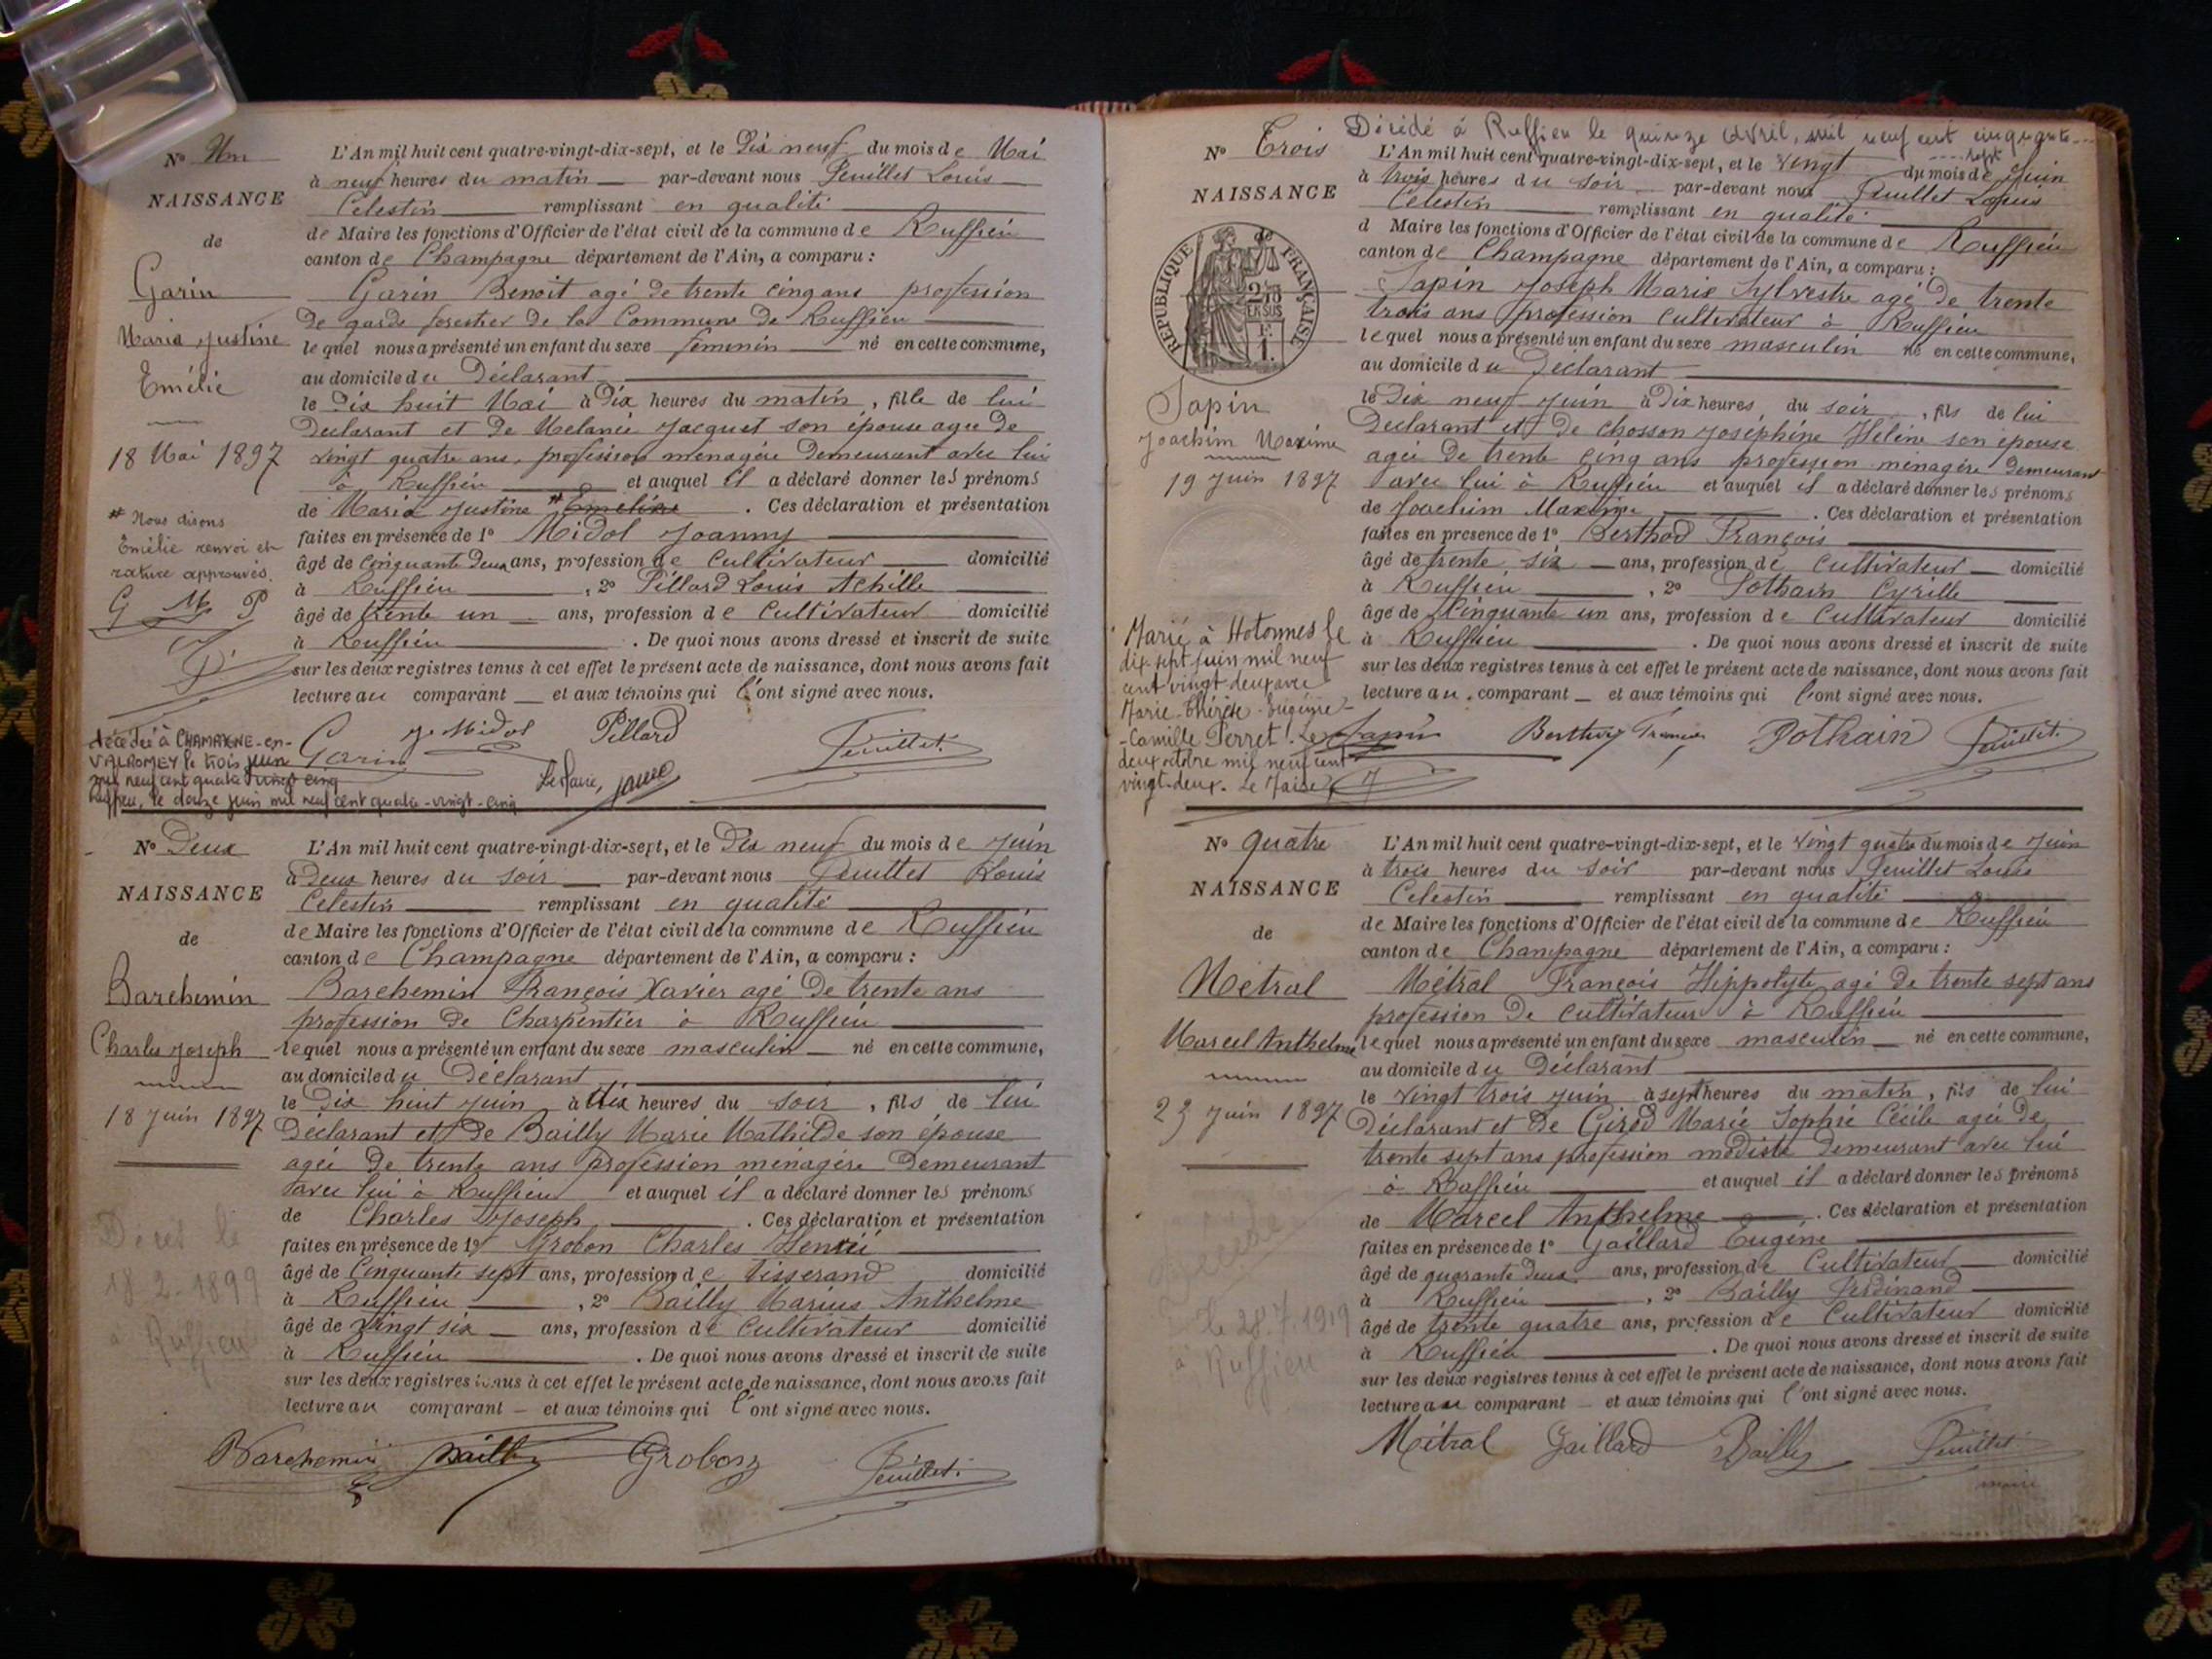 N° Un
NAISSANCE
de
Garin
Maria Justine
Emélie
18 Mai 1897
* Nous disons
Emélie renvoi et
rature approuvés.
G M P
L'An mil huit cent quatre-vingt-dix-sept, et le Dix neuf du mois de Mai
à neuf heures du matin par-devant nous Feuillet Louis
Celestin remplissant en qualité
de Maire les fonctions d'Officier de l'état civil de la commune de Ruffieu
canton de Champagne département de l'Ain, a comparu :
Garin Benoit agé de trente cinq ans profession
de garde forestier de la Commune de Ruffieu
lequel nous a présenté un enfant du sexe femenin né en cette commune,
au domicile du Déclarant
le Dix huit Mai à Dix heures du matin, fille de lui
Declarant et de Melanie Jacquet son épouse agée de
vingt quatre ans, profession menagère demeurant avec lui
à Ruffieu et auquel il a déclaré donner les prénoms
de Maria Justine * Emeline . Ces déclaration et présentation
faites en présence de 1° Midol Joanny
âgé de cinquante deux ans, profession de Cultivateur domicilié
à Ruffieu , 2° Pillard Louis Achille
âgé de trente un ans, profession de Cultivateur domicilié
à Ruffieu . De quoi nous avons dressé et inscrit de suite
sur les deux registres tenus à cet effet le présent acte de naissance, dont nous avons fait
lecture au comparant et aux témoins qui l'ont signé avec nous.
Garin J. Midol Pillard Feuillet
décédée à CHAMPAGNE-en-
VALROMEY le trois juin
mil neuf cent quatre vingt cinq
Ruffieu, le douze juin mil neuf cent quatre-vingt-cinq
Le Maire,
N° Deux
NAISSANCE
de
Barchemin
Charles Joseph
18 Juin 1897
Décès le
18.2.1899
à Ruffieu
L'An mil huit cent quatre-vingt-dix-sept, et le Dix neuf du mois de Juin
à Deux heures du soir par-devant nous Feuillet Louis
Celestin remplissant en qualité
de Maire les fonctions d'Officier de l'état civil de la commune de Ruffieu
canton de Champagne département de l'Ain, a comparu :
Barchemin François Xavier agé de trente ans
profession de Charpentier à Ruffieu
lequel nous a présenté un enfant du sexe masculin né en cette commune,
au domicile du Déclarant
le Dix huit Juin à dix heures du soir , fils de lui
Déclarant et de Bailly Marie Mathilde son épouse
agée de trente ans profession ménagère demeurant
avec lui à Ruffieu et auquel il a déclaré donner les prénoms
de Charles Joseph . Ces déclaration et présentation
faites en présence de 1° Grobon Charles Henri
âgé de Cinquante sept ans, profession de tisserand domicilié
à Ruffieu , 2° Bailly Marius Anthelme
âgé de vingt six ans, profession de Cultivateur domicilié
à Ruffieu . De quoi nous avons dressé et inscrit de suite
sur les deux registres tenus à cet effet le présent acte de naissance, dont nous avons fait
lecture au comparant et aux témoins qui l'ont signé avec nous.
Barchemin Bailly Grobon Feuillet
Décédé à Ruffieu le quinze avril, mil neuf cent cinquante-
sept
N° Trois
NAISSANCE
de
RÉPUBLIQUE FRANÇAISE
2/10 EN SUS
1 F.
Sapin
Joachim Maxime
19 Juin 1897
Marié à Hotonnes le
dix sept juin mil neuf
cent vingt deux avec
Marie-Thérèse-Eugénie-
-Camille Perret. Le
deux octobre mil neuf cent
vingt-deux. Le Maire
L'An mil huit cent quatre-vingt-dix-sept, et le vingt du mois de Juin
à trois heures du soir par-devant nous Feuillet Louis
Célestin remplissant en qualité
d Maire les fonctions d'Officier de l'état civil de la commune de Ruffieu
canton de Champagne département de l'Ain, a comparu :
Sapin Joseph Marie Sylvestre agé de trente
trois ans profession Cultivateur à Ruffieu
lequel nous a présenté un enfant du sexe masculin né en cette commune,
au domicile du Déclarant
le Dix neuf Juin à Dix heures du soir , fils de lui
Declarant et de Chosson Joséphine Hélène son épouse
agée de trente cinq ans profession ménagère demeurant
avec lui à Ruffieu et auquel il a déclaré donner les prénoms
de Joachim Maxime . Ces déclaration et présentation
faites en présence de 1° Berthod François
âgé de trente six ans, profession de Cultivateur domicilié
à Ruffieu , 2° Pothain Cyrille
âgé de Cinquante un ans, profession de Cultivateur domicilié
à Ruffieu . De quoi nous avons dressé et inscrit de suite
sur les deux registres tenus à cet effet le présent acte de naissance, dont nous avons fait
lecture au comparant et aux témoins qui l'ont signé avec nous.
Sapin Berthod François Pothain Feuillet
N° quatre
NAISSANCE
de
Métral
Marcel Anthelme
23 Juin 1897
Décédé
le 28.7.1919
à Ruffieu
L'An mil huit cent quatre-vingt-dix-sept, et le vingt quatre du mois de Juin
à trois heures du soir par-devant nous Feuillet Louis
Celestin remplissant en qualité
de Maire les fonctions d'Officier de l'état civil de la commune de Ruffieu
canton de Champagne département de l'Ain, a comparu :
Métral François Hippolyte agé de trente sept ans
profession de Cultivateur à Ruffieu
lequel nous a présenté un enfant du sexe masculin né en cette commune,
au domicile du Déclarant
le vingt trois Juin à sept heures du matin, fils de lui
Déclarant et de Girod Marie Sophie Cécile agée de
trente sept ans profession modiste demeurant avec lui
à Ruffieu et auquel il a déclaré donner les prénoms
de Marcel Anthelme . Ces déclaration et présentation
faites en présence de 1° Gaillard Eugène
âgé de quarante deux ans, profession de Cultivateur domicilié
à Ruffieu , 2° Bailly Ferdinand
âgé de trente quatre ans, profession de Cultivateur domicilié
à Ruffieu . De quoi nous avons dressé et inscrit de suite
sur les deux registres tenus à cet effet le présent acte de naissance, dont nous avons fait
lecture au comparant et aux témoins qui l'ont signé avec nous.
Métral Gaillard Bailly Feuillet
maire